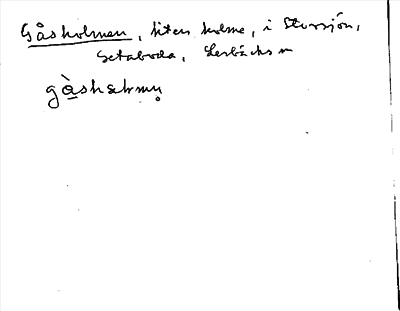 Gåsholmen, liten holme, i Storsjön,
Getaboda, Lersbäcks m
gàshelmn̥